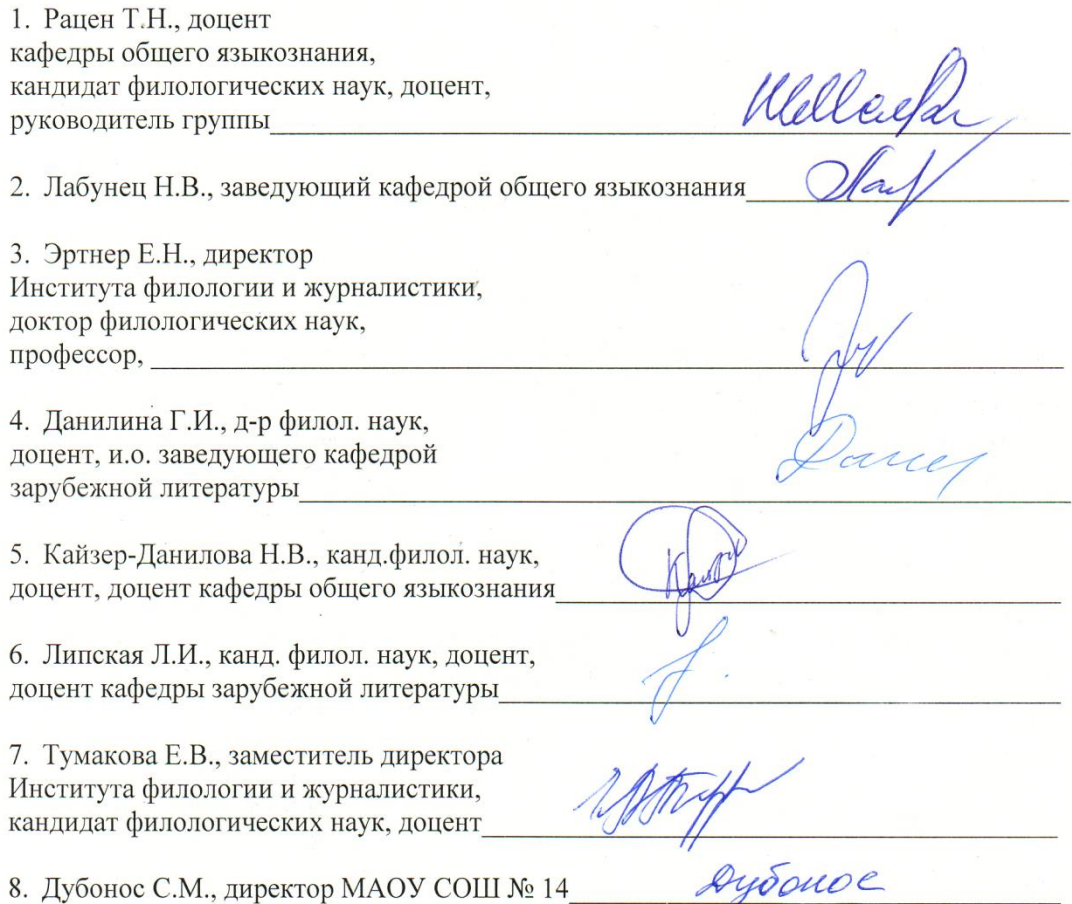 1. Рацен Т.Н., доцент
кафедры общего языкознания,
кандидат филологических наук, доцент,
руководитель группы
2. Лабунец Н.В., заведующий кафедрой общего языкознания
3. Эртнер Е.Н., директор
Института филологии и журналистики,
доктор филологических наук,
профессор,
4. Данилина Г.И., д-р филол. наук,
доцент, и.о. заведующего кафедрой
зарубежной литературы
5. Кайзер-Данилова Н.В., канд.филол. наук,
доцент, доцент кафедры общего языкознания
6. Липская Л.И., канд. филол. наук, доцент,
доцент кафедры зарубежной литературы
7. Тумакова Е.В., заместитель директора
Института филологии и журналистики,
кандидат филологических наук, доцент
8. Дубонос С.М., директор МАОУ СОШ № 14 Дубонос